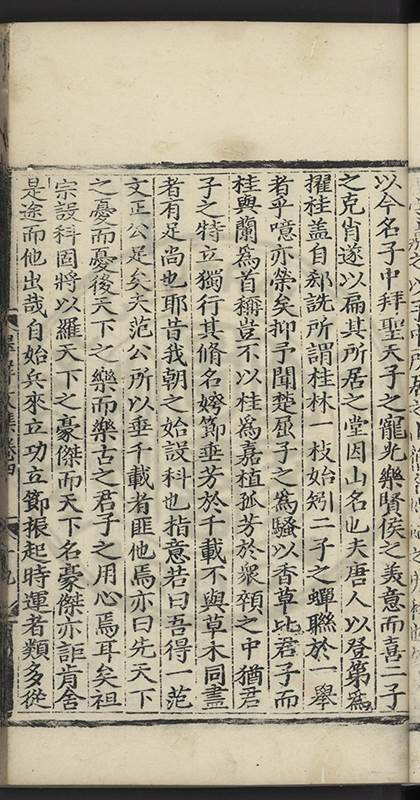 以今名子中拜聖天子之寵光樂賢侯之美意而喜二子
之克肖遂以扁其所居之堂因山名也夫唐人以登第為
擢桂蓋自郄詵所謂桂林一枝始矧二子之蟬聯於一舉
者乎噫亦榮矣抑予聞楚屈子之為騷以香草比君子而
桂與蘭為首稱豈不以桂為嘉植孤芳於衆纇之中猶君
子之特立獨行其脩名姱節垂芳於千載不與草木同盡
者有足尚也耶昔我朝之始設科也指意若曰吾得一范
文正公足矣夫范公所以垂千載者匪他焉亦曰先天下
之憂而憂後天下之樂而樂古之君子之用心焉耳矣祖
宗設科固將以羅天下之豪傑而天下名豪傑亦詎肯舍
是途而他出哉自始兵來立功立節振起時運者類多從